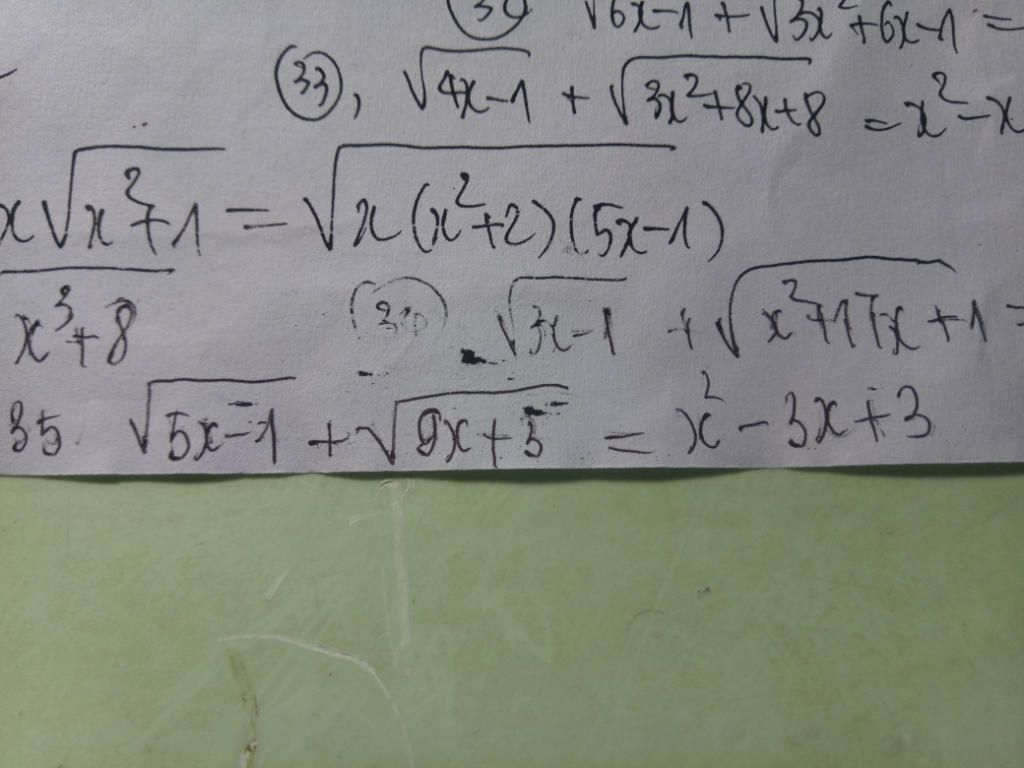 √6x-1 + √3x²+6x-1 =
(33), √4x-1 + √3x²+8x+8 = x²-x
x√x²+1 = √x(x²+2)(5x-1)
x³+8 √3x-1 + √x²+17x+1 =
35 √5x-1 + √9x+3 = x²-3x+3